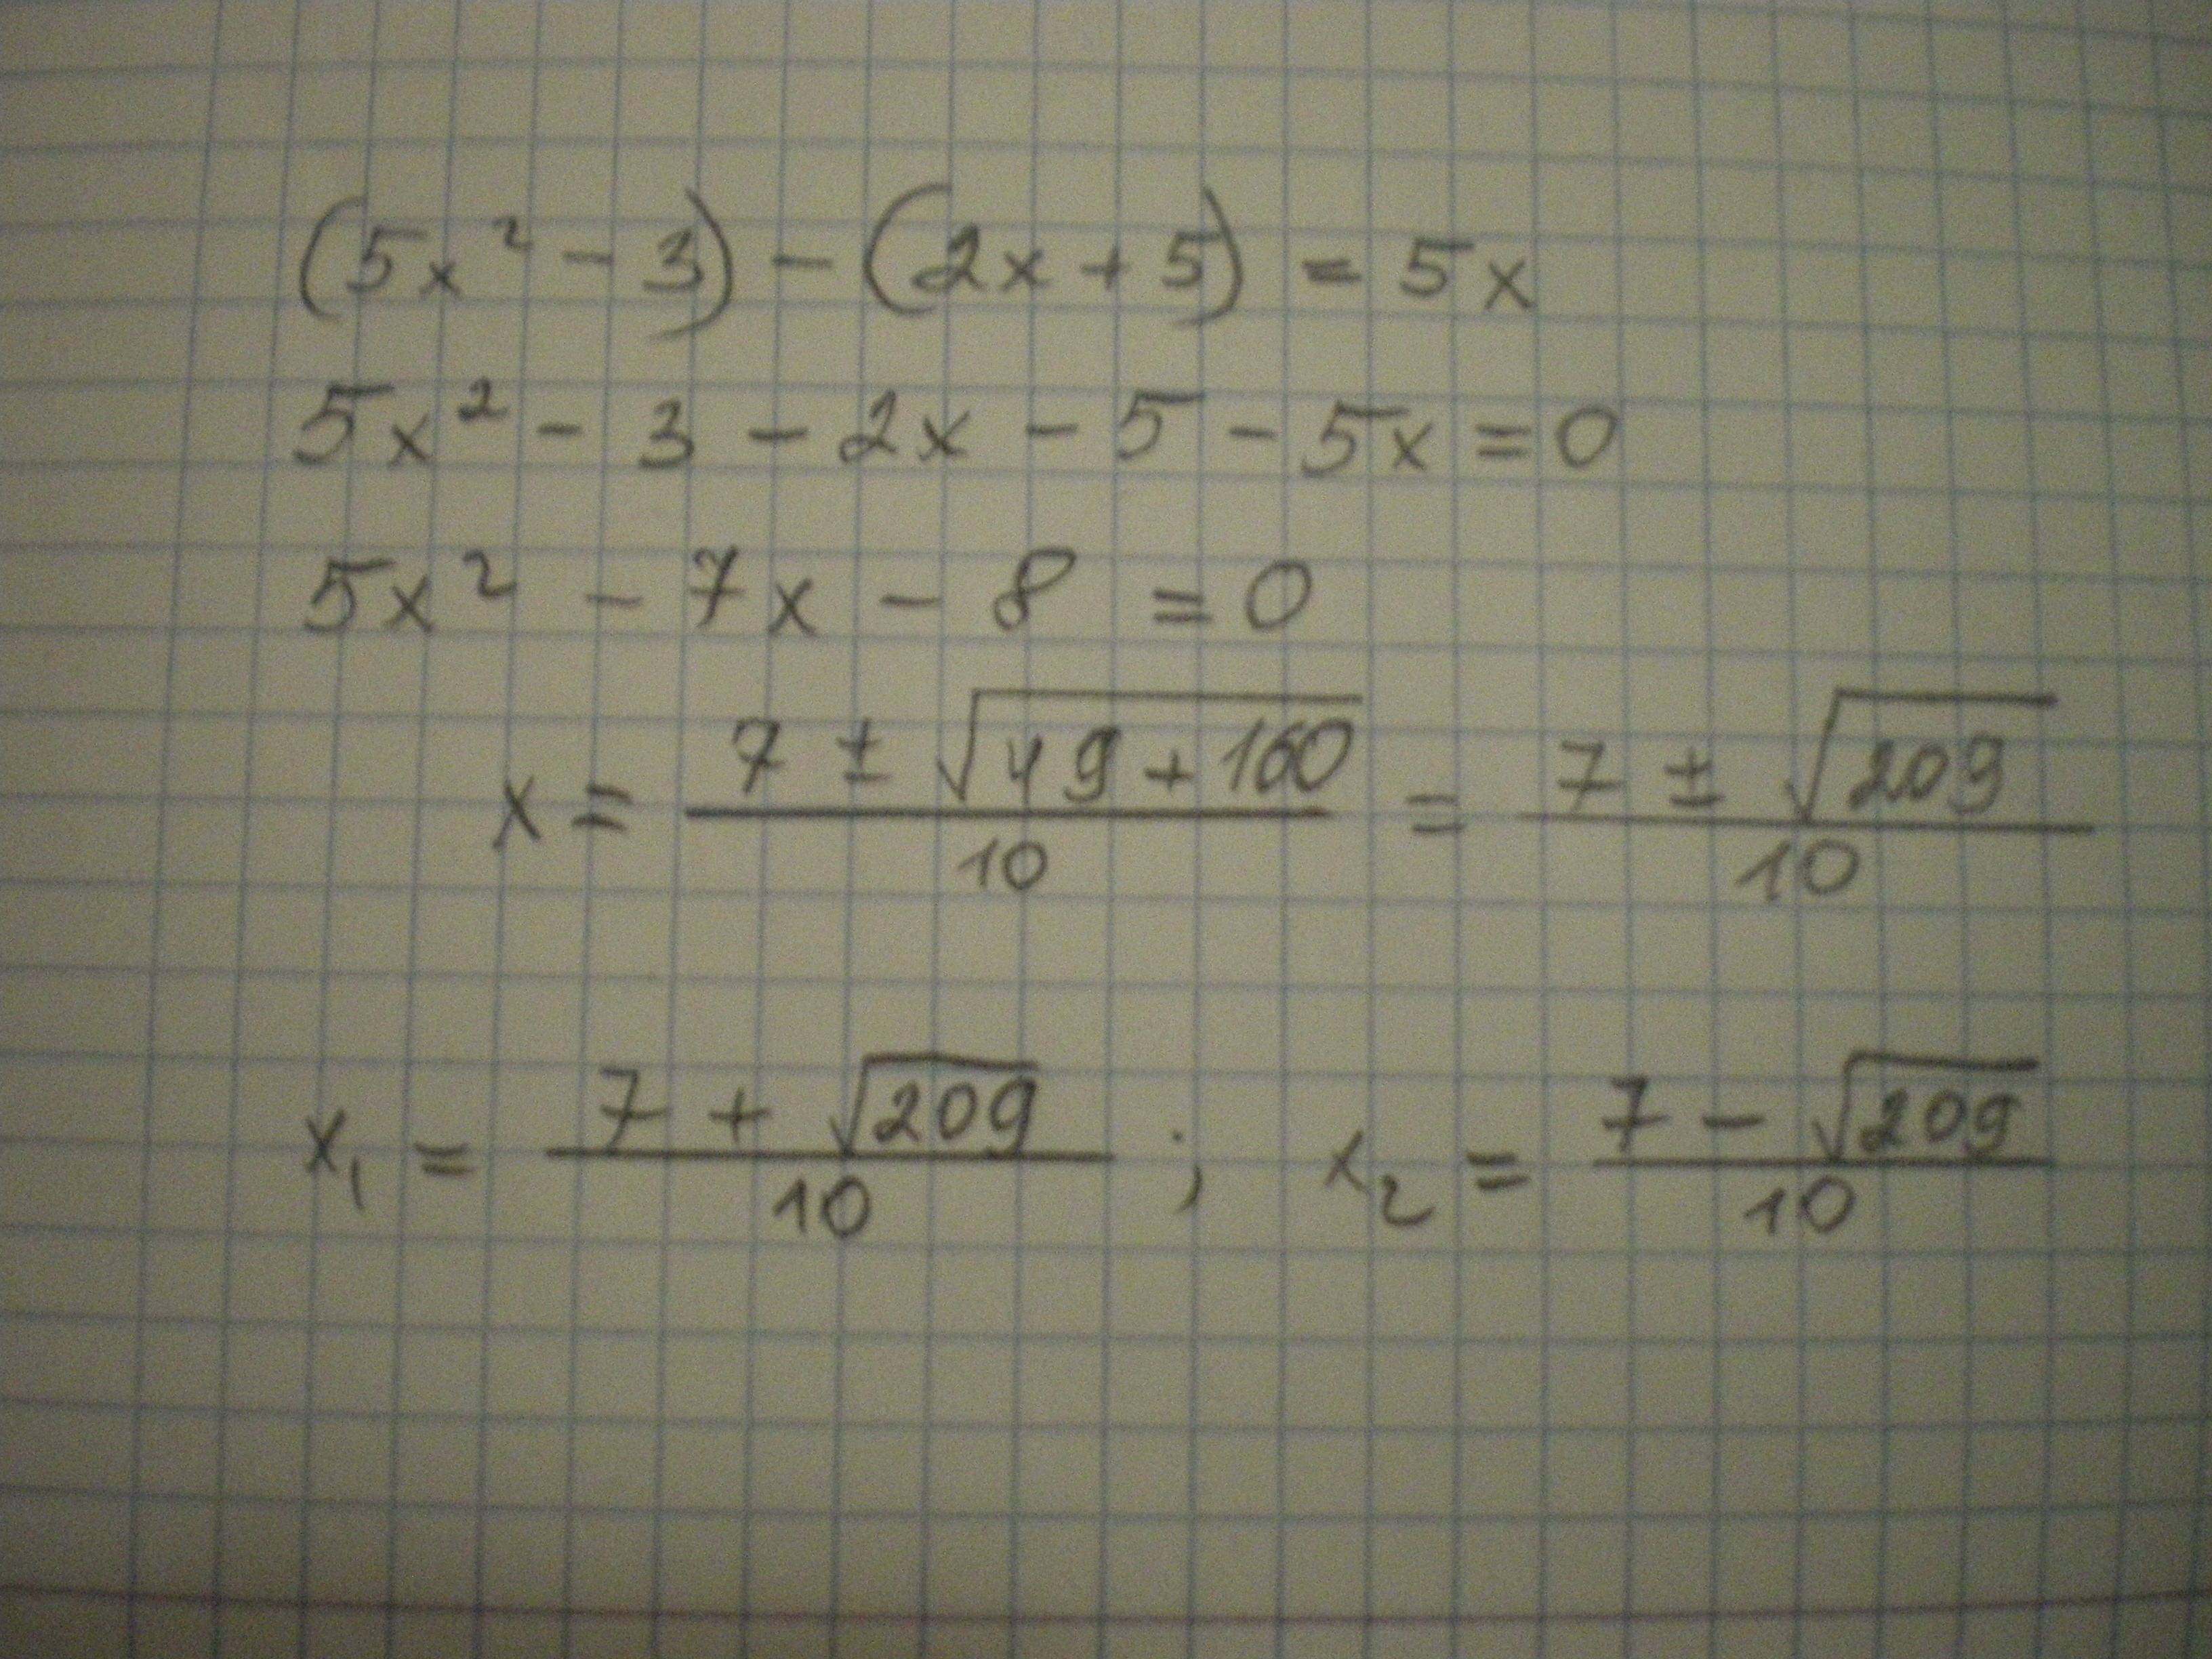 (5x² - 3) - (2x + 5) = 5x
5x² - 3 - 2x - 5 - 5x = 0
5x² - 7x - 8 = 0
x = (7 ± √(49 + 160))/10 = (7 ± √209)/10
x₁ = (7 + √209)/10 ; x₂ = (7 - √209)/10